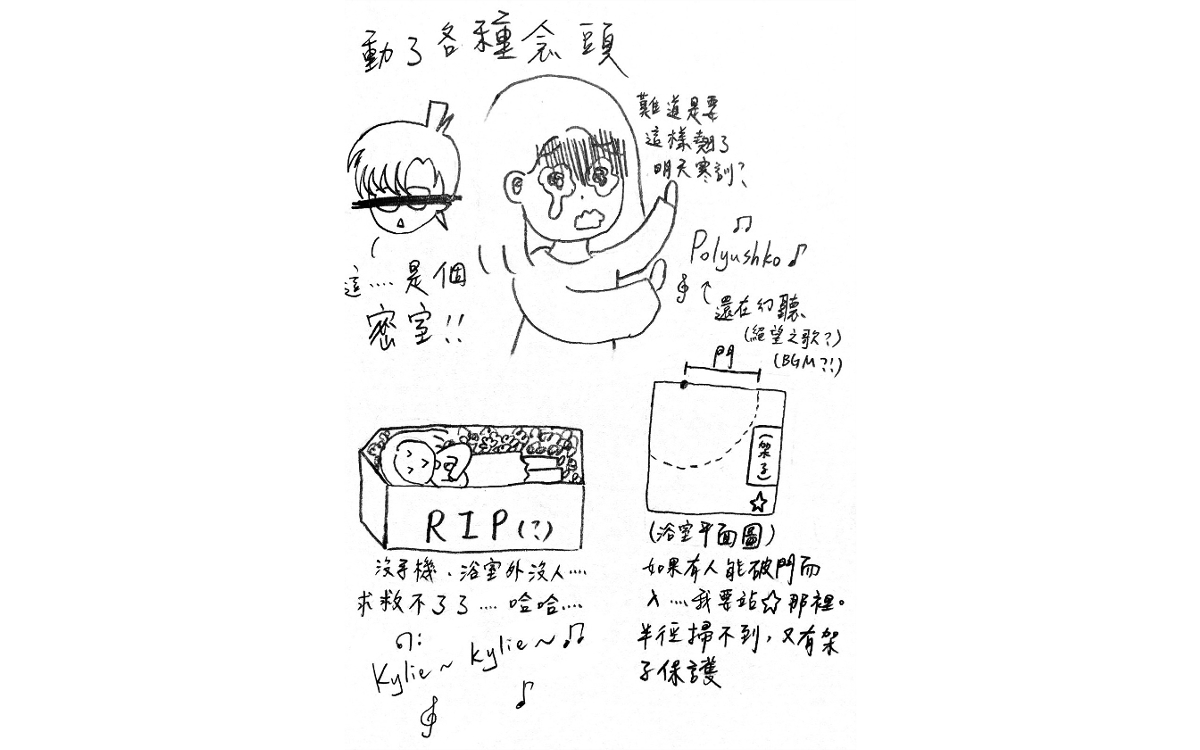 動了各種念頭
難道是要
這樣熱了
明天寒訓?
這....是個
密室!!
Polyushko
還在幻聽
(絕望之歌?)
(BGM?!)
門
(架子)
RIP(?)
沒手機、浴室外沒人....
求救不了了....哈哈....
Kylie~ Kylie~
(浴室平面圖)
如果有人能破門而
入....我要站☆那裡。
半徑掃不到,又有架
子保護